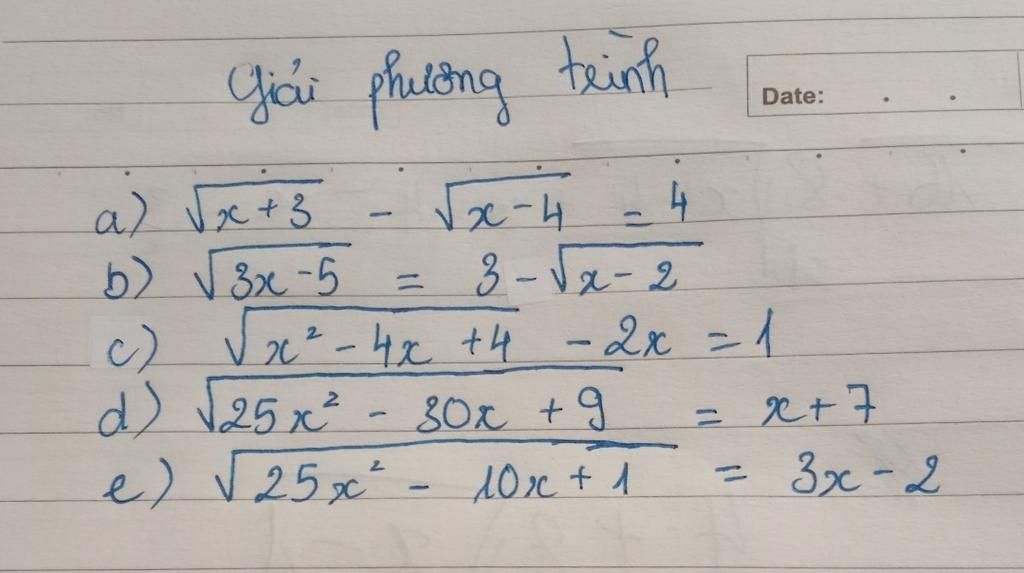 Giải phương trình
Date: . .
a) √(x + 3) - √(x - 4) = 4
b) √(3x - 5) = 3 - √(x - 2)
c) √(x² - 4x + 4) - 2x = 1
d) √(25x² - 30x + 9) = x + 7
e) √(25x² - 10x + 1) = 3x - 2